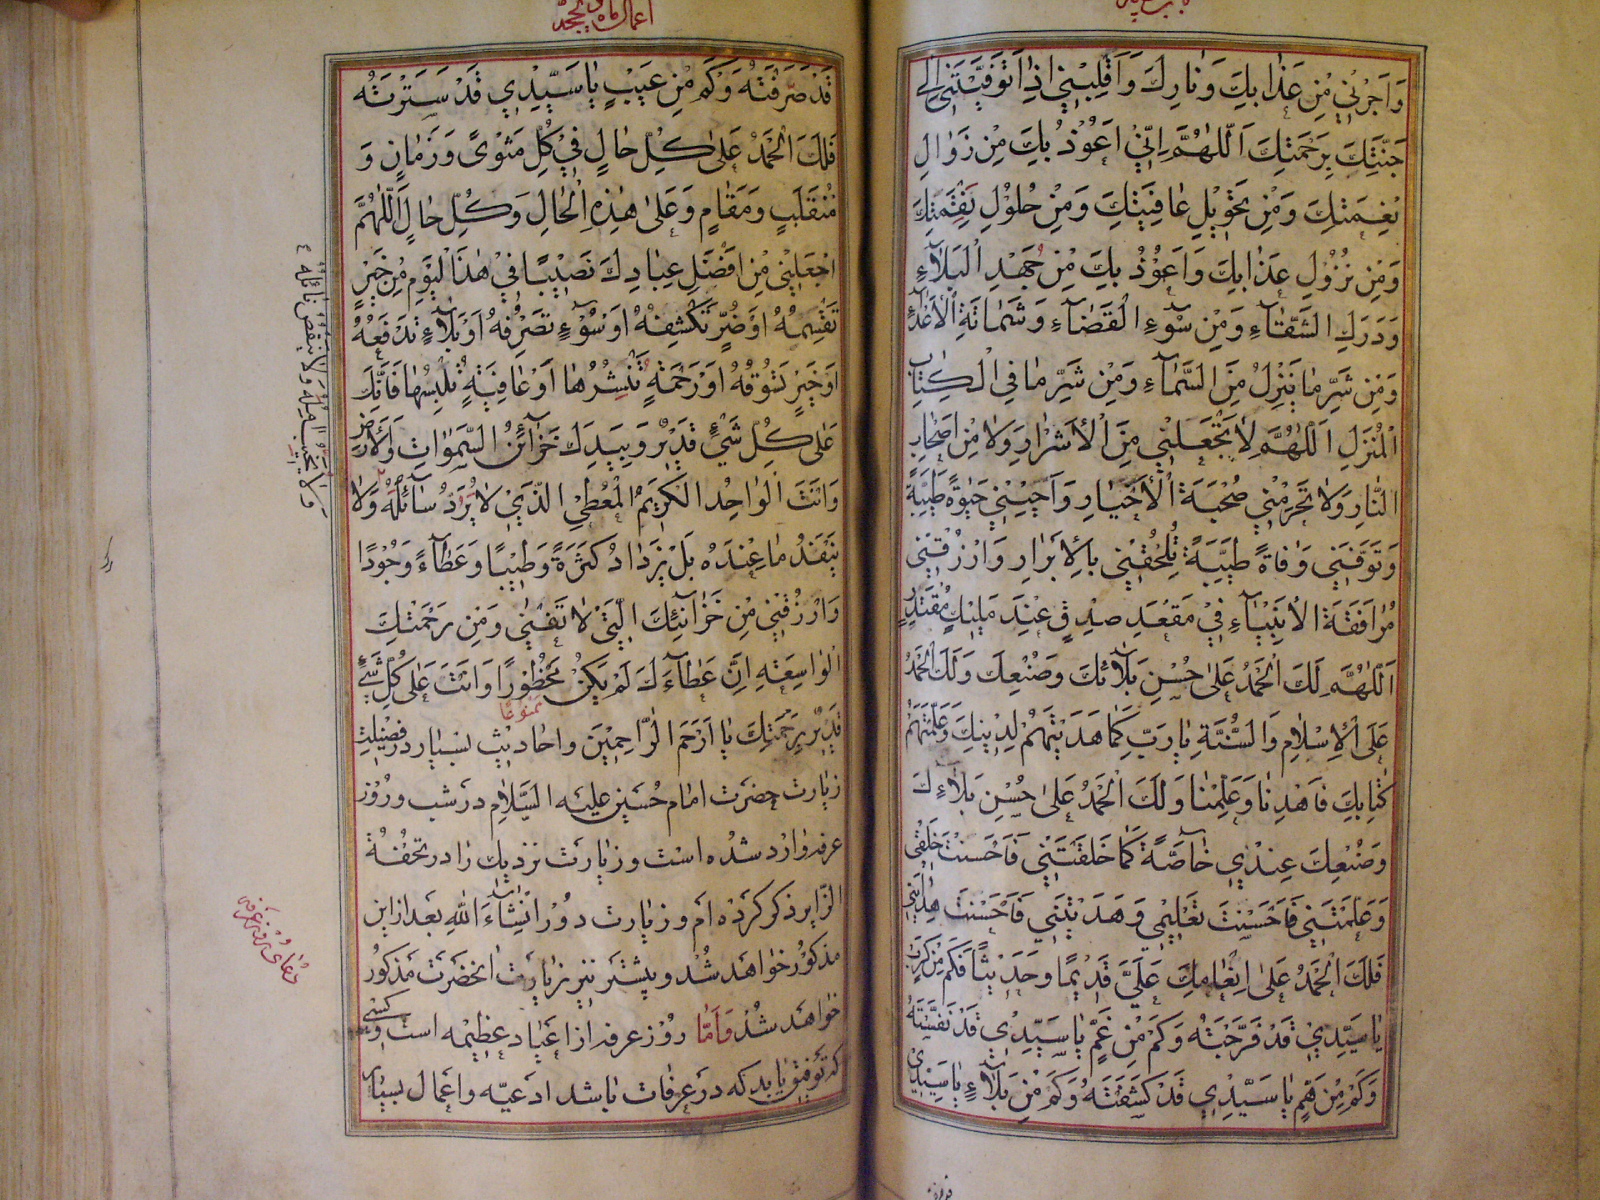 وَاَجِرْنِي مِنْ عَذَابِكَ وَنَارِكَ وَاَقْلِبْنِي اِذَا تَوَفَّيْتَنِي اِلَى
جَنَّتِكَ بِرَحْمَتِكَ اَللّٰهُمَّ اِنِّي اَعُوذُ بِكَ مِنْ زَوَالِ
نِعْمَتِكَ وَمِنْ تَحْوِيلِ عَافِيَتِكَ وَمِنْ حُلُولِ نَقِمَتِكَ
وَمِنْ نُزُولِ عَذَابِكَ وَاَعُوذُ بِكَ مِنْ جُهْدِ الْبَلَآءِ
وَدَرَكِ الشَّقَآءِ وَمِنْ سُوۤءِ الْقَضَآءِ وَشَمَاتَةِ الْاَعْدَآءِ
وَمِنْ شَرِّ مَا يَنْزِلُ مِنَ السَّمَآءِ وَمِنْ شَرِّ مَا فِي الْكِتَابِ
الْمُنْزَلِ اَللّٰهُمَّ لَا تَجْعَلْنِي مِنَ الْاَشْرَارِ وَلَا مِنْ اَصْحَابِ
النَّارِ وَلَا تَحْرِمْنِي صُحْبَةَ الْاَخْيَارِ وَاَحْيِنِي حَيٰوةً طَيِّبَةً
وَتَوَفَّنِي وَفَاةً طَيِّبَةً تُلْحِقُنِي بِالْاَبْرَارِ وَارْزُقْنِي
مُرَافَقَةَ الْاَنْبِيَآءِ فِي مَقْعَدِ صِدْقٍ عِنْدَ مَلِيكٍ مُقْتَدِرٍ
اَللّٰهُمَّ لَكَ الْحَمْدُ عَلٰى حُسْنِ بَلَآئِكَ وَصُنْعِكَ وَلَكَ الْحَمْدُ
عَلَى الْاِسْلَامِ وَالسُّنَّةِ يَا رَبِّ كَمَا هَدَيْتَهُمْ لِدِينِكَ وَعَلَّمْتَهُمْ
كِتَابَكَ فَاهْدِنَا وَعَلِّمْنَا وَلَكَ الْحَمْدُ عَلٰى حُسْنِ بَلَآءِكَ
وَصُنْعِكَ عِنْدِي خَاصَّةً كَمَا خَلَقْتَنِي فَاَحْسَنْتَ خَلْقِي
وَعَلَّمْتَنِي فَاَحْسَنْتَ تَعْلِيمِي وَهَدَيْتَنِي فَاَحْسَنْتَ هِدَايَتِي
فَلَكَ الْحَمْدُ عَلٰى اِنْعَامِكَ عَلَيَّ قَدِيمًا وَحَدِيثًا فَكَمْ مِنْ كَرْبٍ
يَا سَيِّدِي قَدْ فَرَّجْتَهُ وَكَمْ مِنْ غَمٍّ يَا سَيِّدِي قَدْ نَفَّسْتَهُ
وَكَمْ مِنْ هَمٍّ يَا سَيِّدِي قَدْ كَشَفْتَهُ وَكَمْ مِنْ بَلَآءٍ يَا سَيِّدِي
اعمال ماه ذيحجه
قَدْ صَرَفْتَهُ وَكَمْ مِنْ عَيْبٍ يَا سَيِّدِي قَدْ سَتَرْتَهُ
فَلَكَ الْحَمْدُ عَلٰى كُلِّ حَالٍ فِي كُلِّ مَثْوًى وَزَمَانٍ وَ
مُنْقَلَبٍ وَمَقَامٍ وَعَلٰى هٰذِهِ الْحَالِ وَكُلِّ حَالٍ اَللّٰهُمَّ
اجْعَلْنِي مِنْ اَفْضَلِ عِبَادِكَ نَصِيبًا فِي هٰذَا الْيَوْمِ مِنْ خَيْرٍ
تَقْسِمُهُ اَوْ ضُرٍّ تَكْشِفُهُ اَوْ سُوۤءٍ تَصْرِفُهُ اَوْ بَلَآءٍ تَدْفَعُهُ
اَوْ خَيْرٍ تَسُوقُهُ اَوْ رَحْمَةٍ تَنْشُرُهَا اَوْ عَافِيَةٍ تُلْبِسُهَا فَاِنَّكَ
عَلٰى كُلِّ شَيْءٍ قَدِيرٌ وَبِيَدِكَ خَزَآئِنُ السَّمٰوَاتِ وَالْاَرْضِ
وَاَنْتَ الْوَاحِدُ الْكَرِيمُ الْمُعْطِي الَّذِي لَا يُرَدُّ سَآئِلُهُ وَلَا
يَنْفَدُ مَا عِنْدَهُ بَلْ يَزْدَادُ كَثْرَةً وَطِيبًا وَعَطَآءً وَجُودًا
وَارْزُقْنِي مِنْ خَزَآئِنِكَ الَّتِي لَا تَفْنٰى وَمِنْ رَحْمَتِكَ
الْوَاسِعَةِ اِنَّ عَطَآءَكَ لَمْ يَكُنْ مَحْظُورًا وَاَنْتَ عَلٰى كُلِّ شَيْءٍ
ممنوعًا
قَدِيرٌ بِرَحْمَتِكَ يَا اَرْحَمَ الرَّاحِمِينَ واحاديث بسيار در فضيلت
زيارت حضرت امام حسين عليه السلام در شب و روز
عرفه وارد شده است و زيارت نزديك را در تحفة
الزاير ذكر كرده ام و زيارت دور انشاء الله بعد از اين
مذكور خواهد شد و بيشتر نيز زيارت انحضرت مذكور
خواهد شد و اما روز عرفه از اعياد عظيمه است و كسى
كه توفيق يابد كه در عرفات باشد ادعيه و اعمال بسيار
وَلَا يُخَيَّبُ اٰمِلُهُ وَلَا يَنْقُصُ نَآئِلُهُ
دعاى روز عرفه